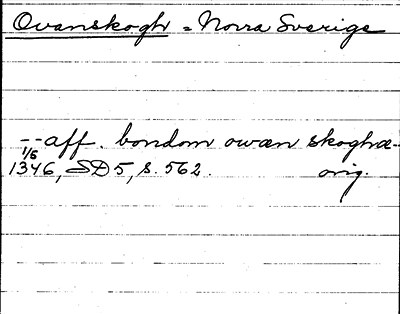 Ovanskogh = Norra Sverige
-- aff. bondom owæn skoghæ-
1/5
1346, SD 5, s. 562. orig.